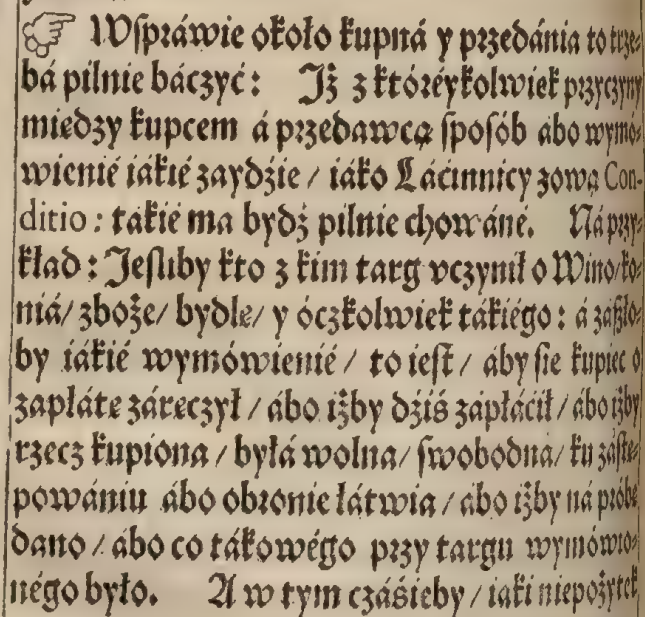 ☞ Wſpráwie około kupná y przedánia to trze⸗
bá pilnie báczyć : Iż z któréykolwiek przyczyny
miedzy kupcem á przedawcą ſpoſób ábo wymó⸗
wienié iákié zaydźie / iáko Láćinnicy zową Con-
ditio : tákié ma bydź pilnie chowáné. Ná przy⸗
kład : Jeſliby kto z kim targ vczynił o Wino/ ko⸗
niá/ zboże/ bydle/ y óczkolwiek tákiégo : á záſzło⸗
by iákié wymówienié / to ieſt / áby ſie kupiec o
zapłáte záreczył / ábo iżby dźiś zápłáćił / ábo iżby
rzecz kupiona / byłá wolna/ ſwobodna/ ku záſtę⸗
powániu ábo obronie łátwia / ábo iżby ná próbę
dano / ábo co tákowégo przy targu wymówio⸗
négo było. A w tym czáśieby / iáki niepożytek